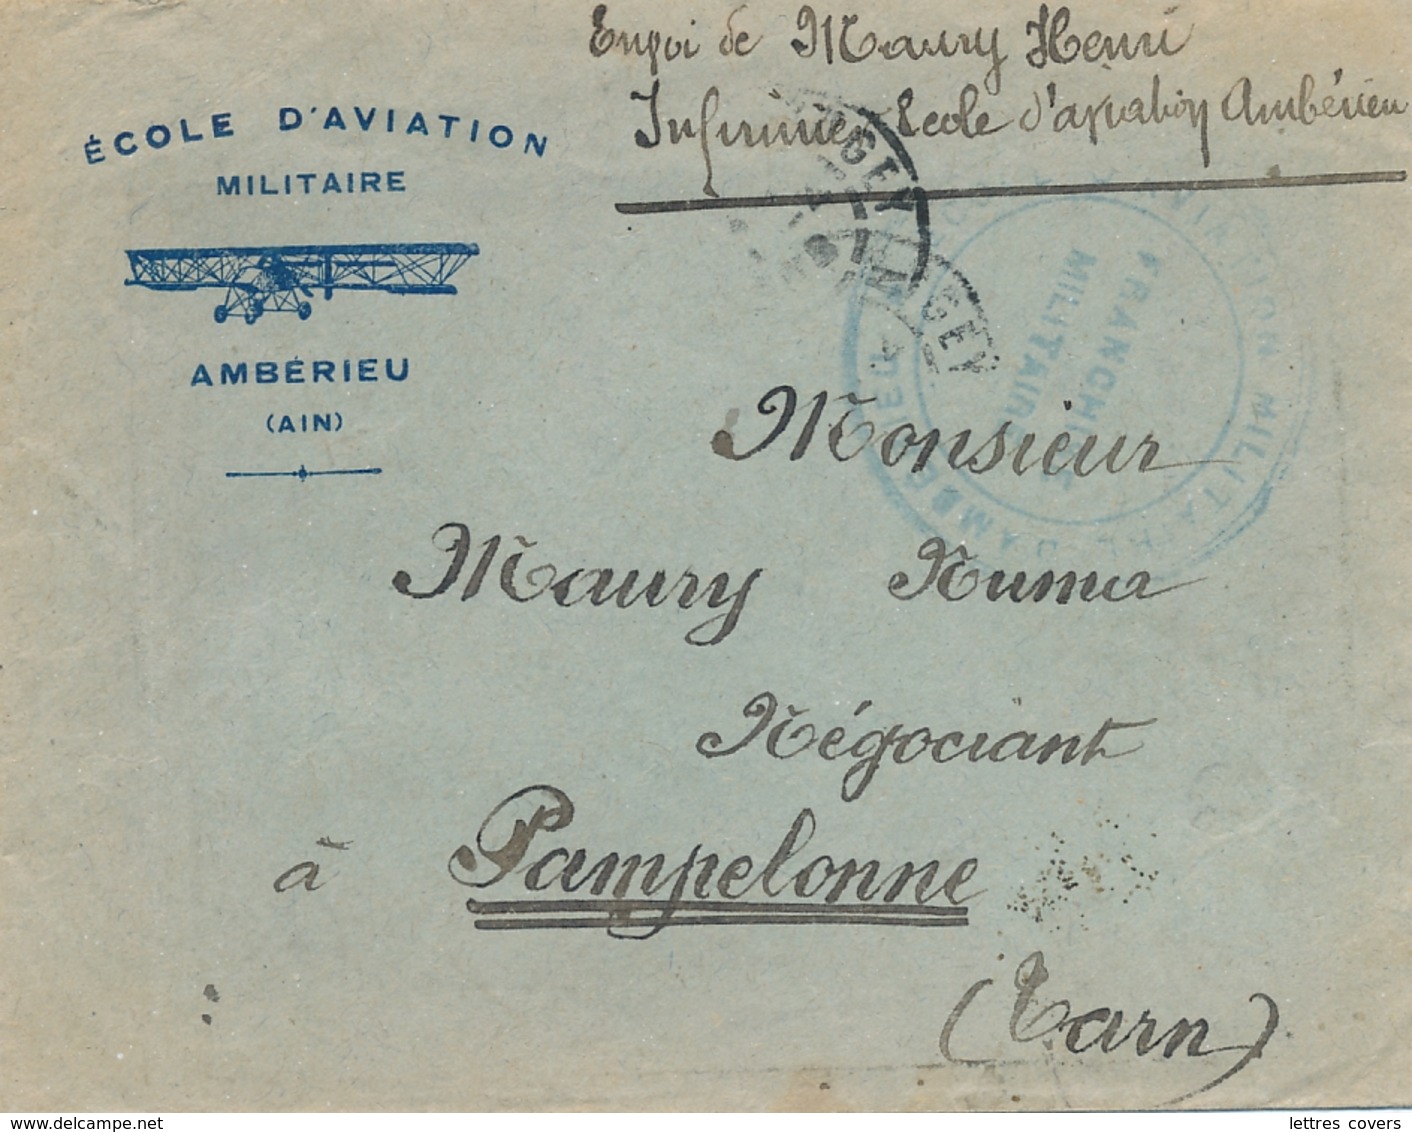 Envoi de Maury Henri
Infirmerie Ecole d'aviation Ambérieu
ÉCOLE D'AVIATION
MILITAIRE
AMBÉRIEU
(AIN)
AVIATION MILITAIRE D'AMBERIEU
FRANCHISE
MILITAIRE
UGEY
UGEY
Monsieur
Maury Numa
Négociant
à Pampelonne
(Tarn)
lettres covers